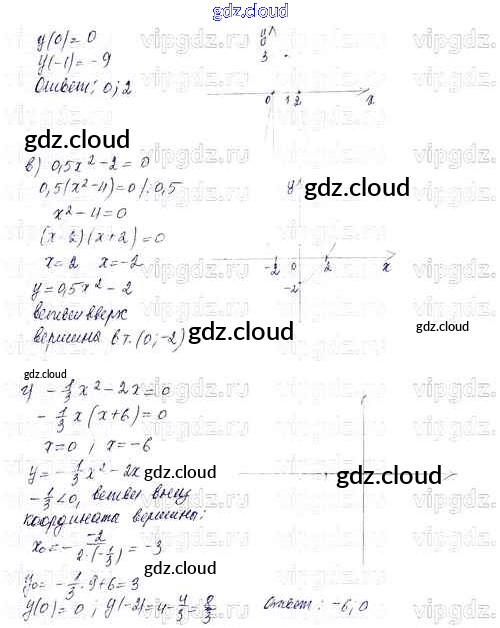 gdz.cloud
y(0)=0
y(-1)=-9
Ответ: 0; 2
y
3
0 1 2 x
gdz.cloud
в) 0,5x² - 2 = 0
0,5(x²-4)=0 /:0,5
x² - 4 = 0
(x-2)(x+2)=0
x=2 x=-2
y=0,5x² - 2
ветви вверх
вершина в т. (0; -2)
y
-2 0 2 x
-2
gdz.cloud
gdz.cloud
gdz.cloud
gdz.cloud
г) -1/3 x² - 2x = 0
-1/3 x (x+6) = 0
x=0, x=-6
y = -1/3 x² - 2x
-1/3 < 0, ветви вниз
координата вершины:
x₀ = - -2/(2·(-1/3)) = -3
y₀ = -1/3 · 9 + 6 = 3
y(0) = 0; y(-2) = 4 - 4/3 = 8/3
Ответ: -6; 0
gdz.cloud
gdz.cloud
gdz.cloud
vipgdz.ru